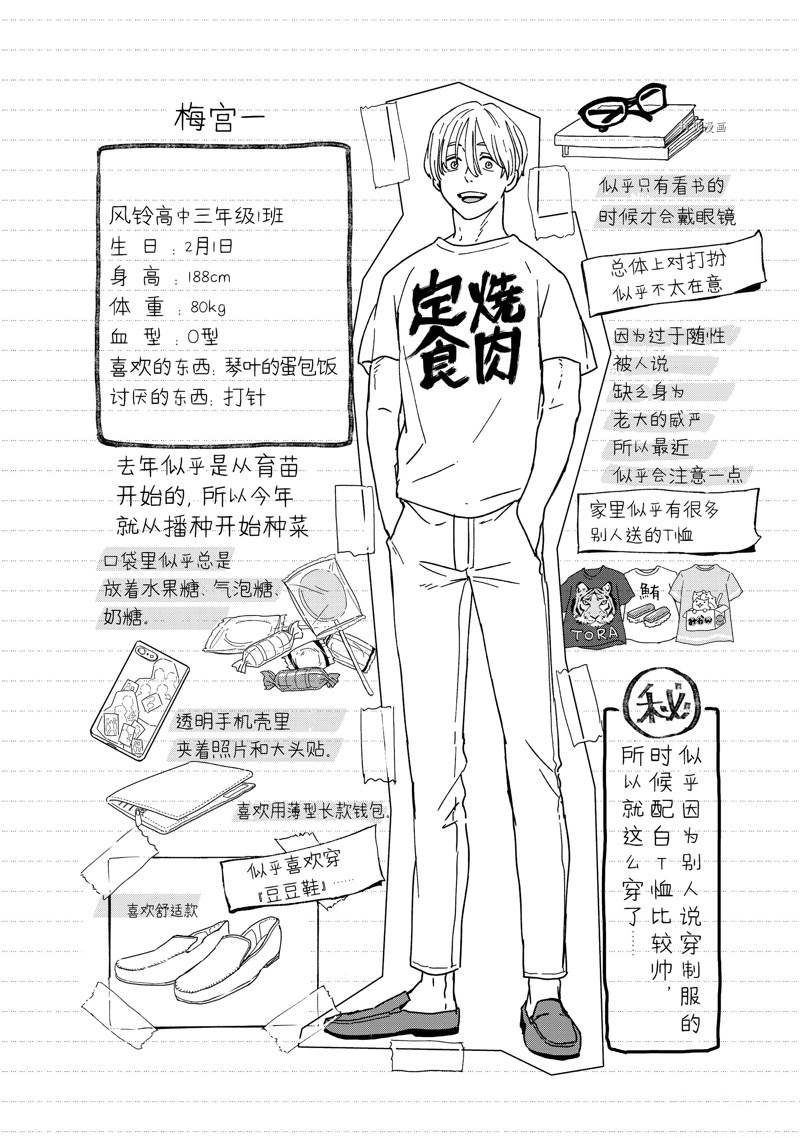 梅宫一
风铃高中三年级1班
生 日 : 2月1日
身 高 : 188cm
体 重 : 80kg
血 型 : O型
喜欢的东西: 琴叶的蛋包饭
讨厌的东西: 打针
去年似乎是从育苗
开始的, 所以今年
就从播种开始种菜
口袋里似乎总是
放着水果糖、气泡糖、
奶糖。
透明手机壳里
夹着照片和大头贴。
喜欢用薄型长款钱包。
似乎喜欢穿
『豆豆鞋』……
喜欢舒适款
燒肉
定食
似乎只有看书的
时候才会戴眼镜
总体上对打扮
似乎不太在意
因为过于随性
被人说
缺乏身为
老大的威严
所以最近
似乎会注意一点
家里似乎有很多
别人送的T恤
TORA
鮪
秘
似乎因为别人说穿制服的
时候配白T恤比较帅，
所以就这么穿了……